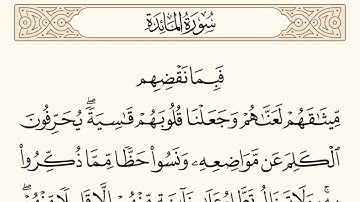 سُورَةُ المَائِدَةِ
فَبِمَا نَقْضِهِم
مِّيثَـٰقَهُمْ لَعَنَّـٰهُمْ وَجَعَلْنَا قُلُوبَهُمْ قَـٰسِيَةًۖ يُحَرِّفُونَ
ٱلْكَلِمَ عَن مَّوَاضِعِهِۦ وَنَسُوا۟ حَظًّا مِّمَّا ذُكِّرُوا۟